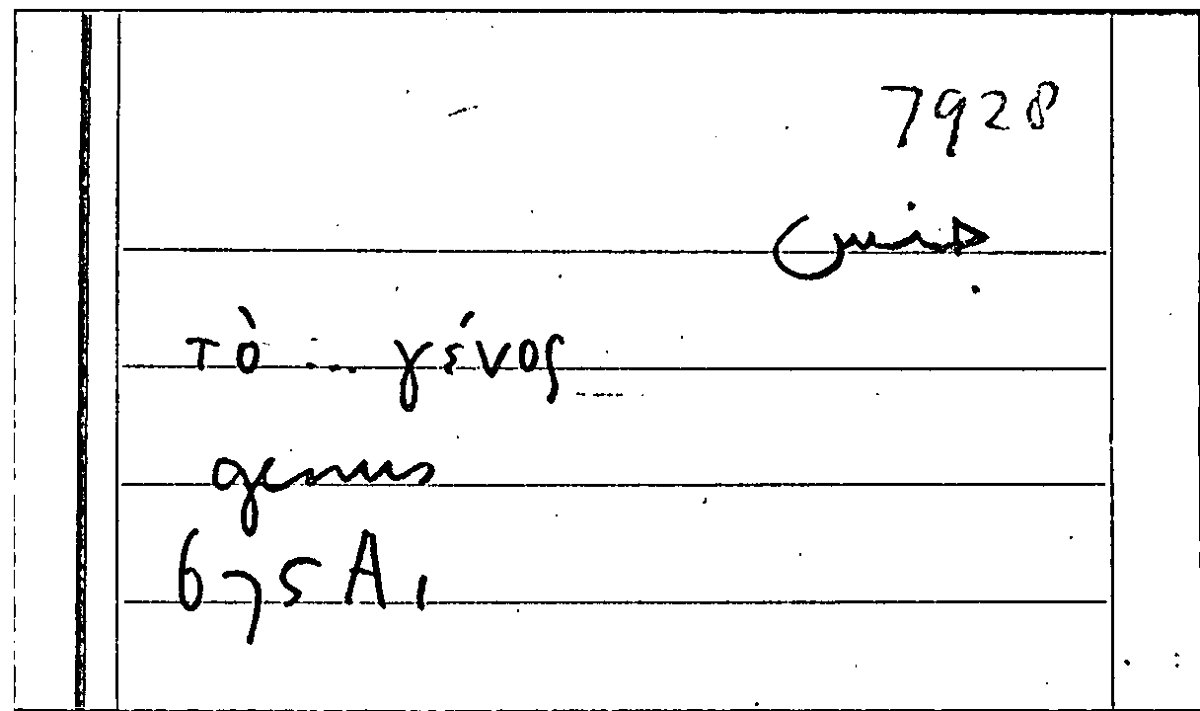 7928
جنس
τὸ ... γένος
genus
675A1